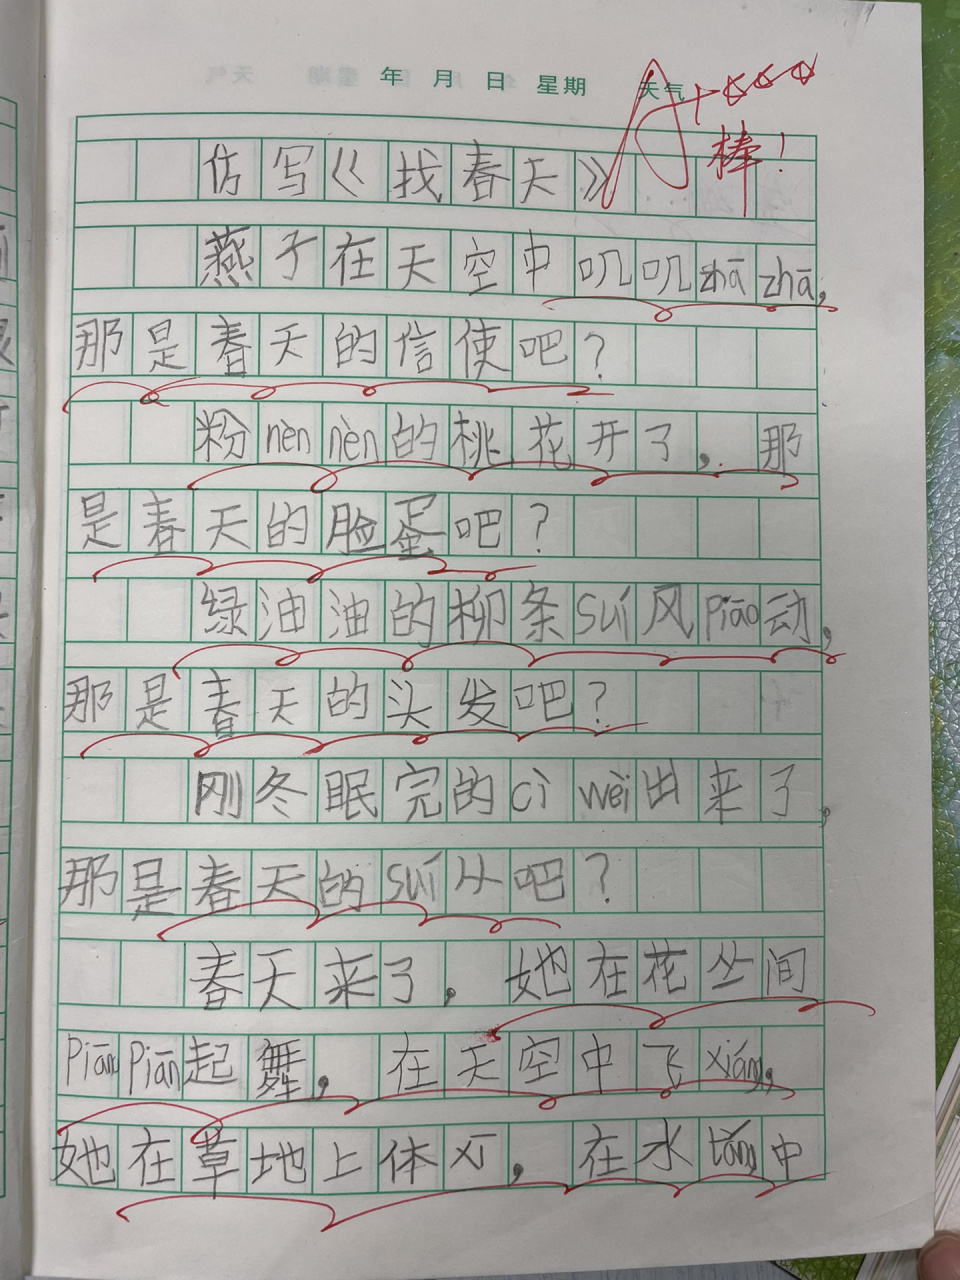 年 月 日 星期 天气
A+☆☆☆
棒!
仿写《找春天》
燕子在天空中叽叽zhā zhā,
那是春天的信使吧?
粉nèn nèn的桃花开了,那
是春天的脸蛋吧?
绿油油的柳条suí风piāo动,
那是春天的头发吧?
刚冬眠完的cì wèi出来了,
那是春天的suí从吧?
春天来了,她在花丛间
piān piān起舞,在天空中飞xiáng,
她在草地上体,在水táng中